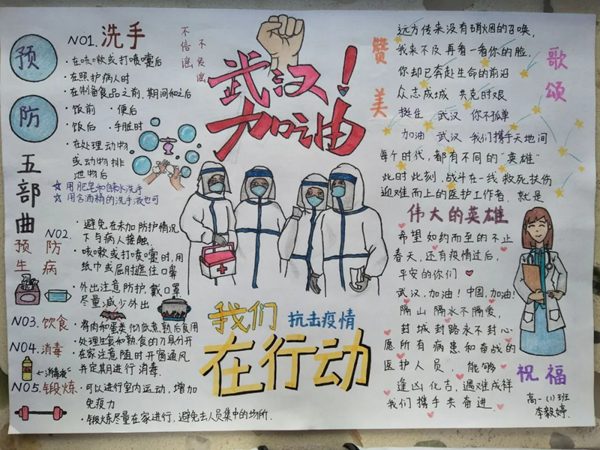 预防五部曲
NO1. 洗手
·在咳嗽或打喷嚏后
·在照护病人时
·在制备食品之前,期间和之后
·饭前 便后
饭后 手脏时
·在处理动物
或动物排
泄物后
☆用肥皂和
洗手
☆用含酒精的洗手液也可
预防生病
NO2.
·避免在未加防护情况
下与病人接触
·咳嗽或打喷嚏时,用
纸巾或屈肘遮住口鼻
·外出注意防护,戴口罩
尽量减少外出
NO3. 饮食
·将肉和蛋类彻底煮熟后食用
·处理生食和熟食的刀具分开
NO4. 消毒
·在家注意随时开窗通风
并定期进行消毒.
←消毒液
NO5. 锻炼
·可以进行室内运动,增加
免疫力
·锻炼尽量在家进行,避免去人员集中的场所.
不信谣
不传谣
武汉!
加油
我们
抗击疫情
在行动
赞美
歌颂
远方传来没有硝烟的召唤,
我来不及再看一看你的脸,
你却已奔赴生命的前沿
众志成城 共克时艰
挺住 武汉 你不孤单
加油 武汉 我们携手天地间
每个时代,都有不同的“英雄”
此时此刻,战斗在一线救死扶伤
迎难而上的医护工作者,就是
伟大的英雄
希望如约而至的不止
春天,还有疫情过后,
平安的你们
武汉,加油!中国,加油!
隔山 隔水不隔爱,
封城封路永不封心.
愿所有病患和奋战的
医护人员 能够
逢凶化吉,遇难成祥
我们携手共奋进
祝福
高一(1)班
李毅婷